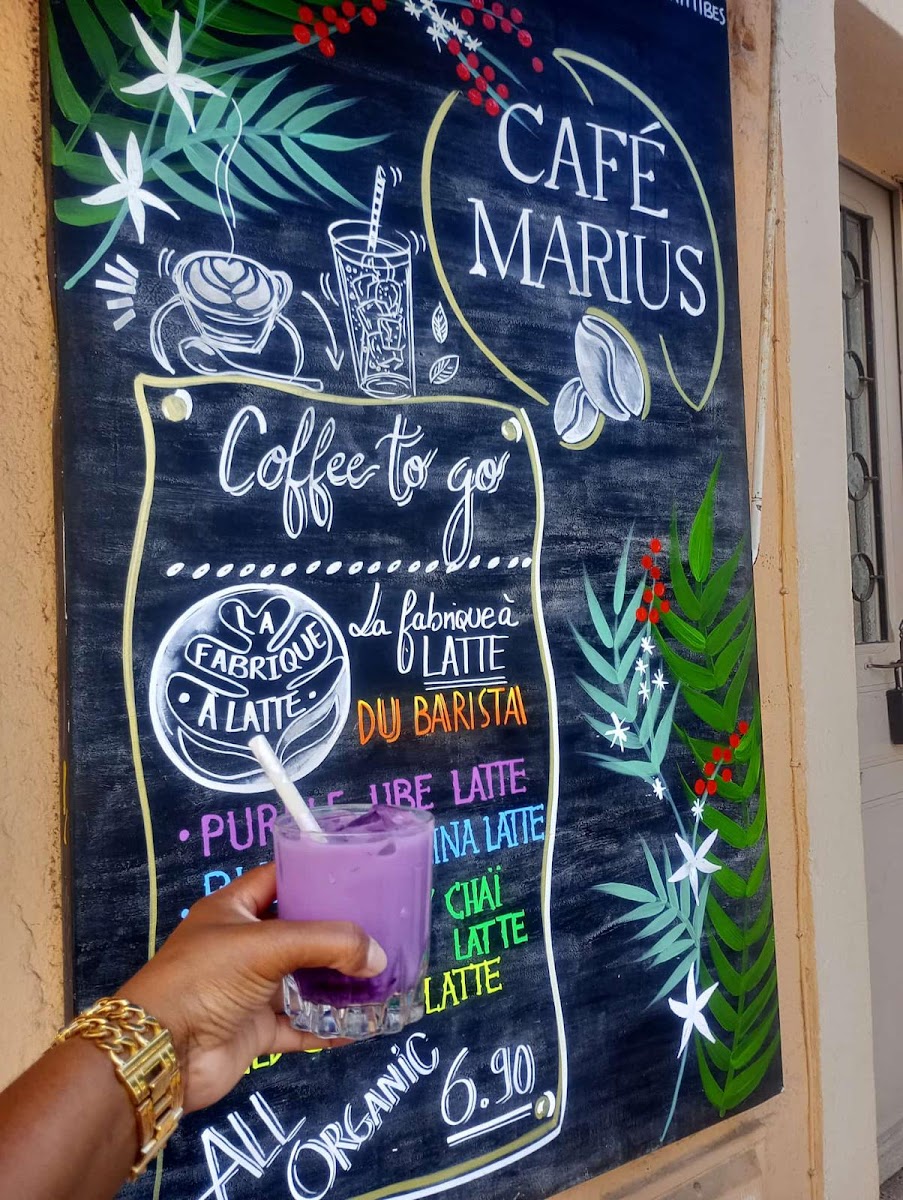 CAFÉ
MARIUS
Coffee to go
LA
FABRIQUE
• À LATTE •
La fabrique à
LATTE
DU BARISTA
• UBE LATTE
LATTE
CHAÏ
LATTE
LATTE
ALL
ORGANIC
6.90